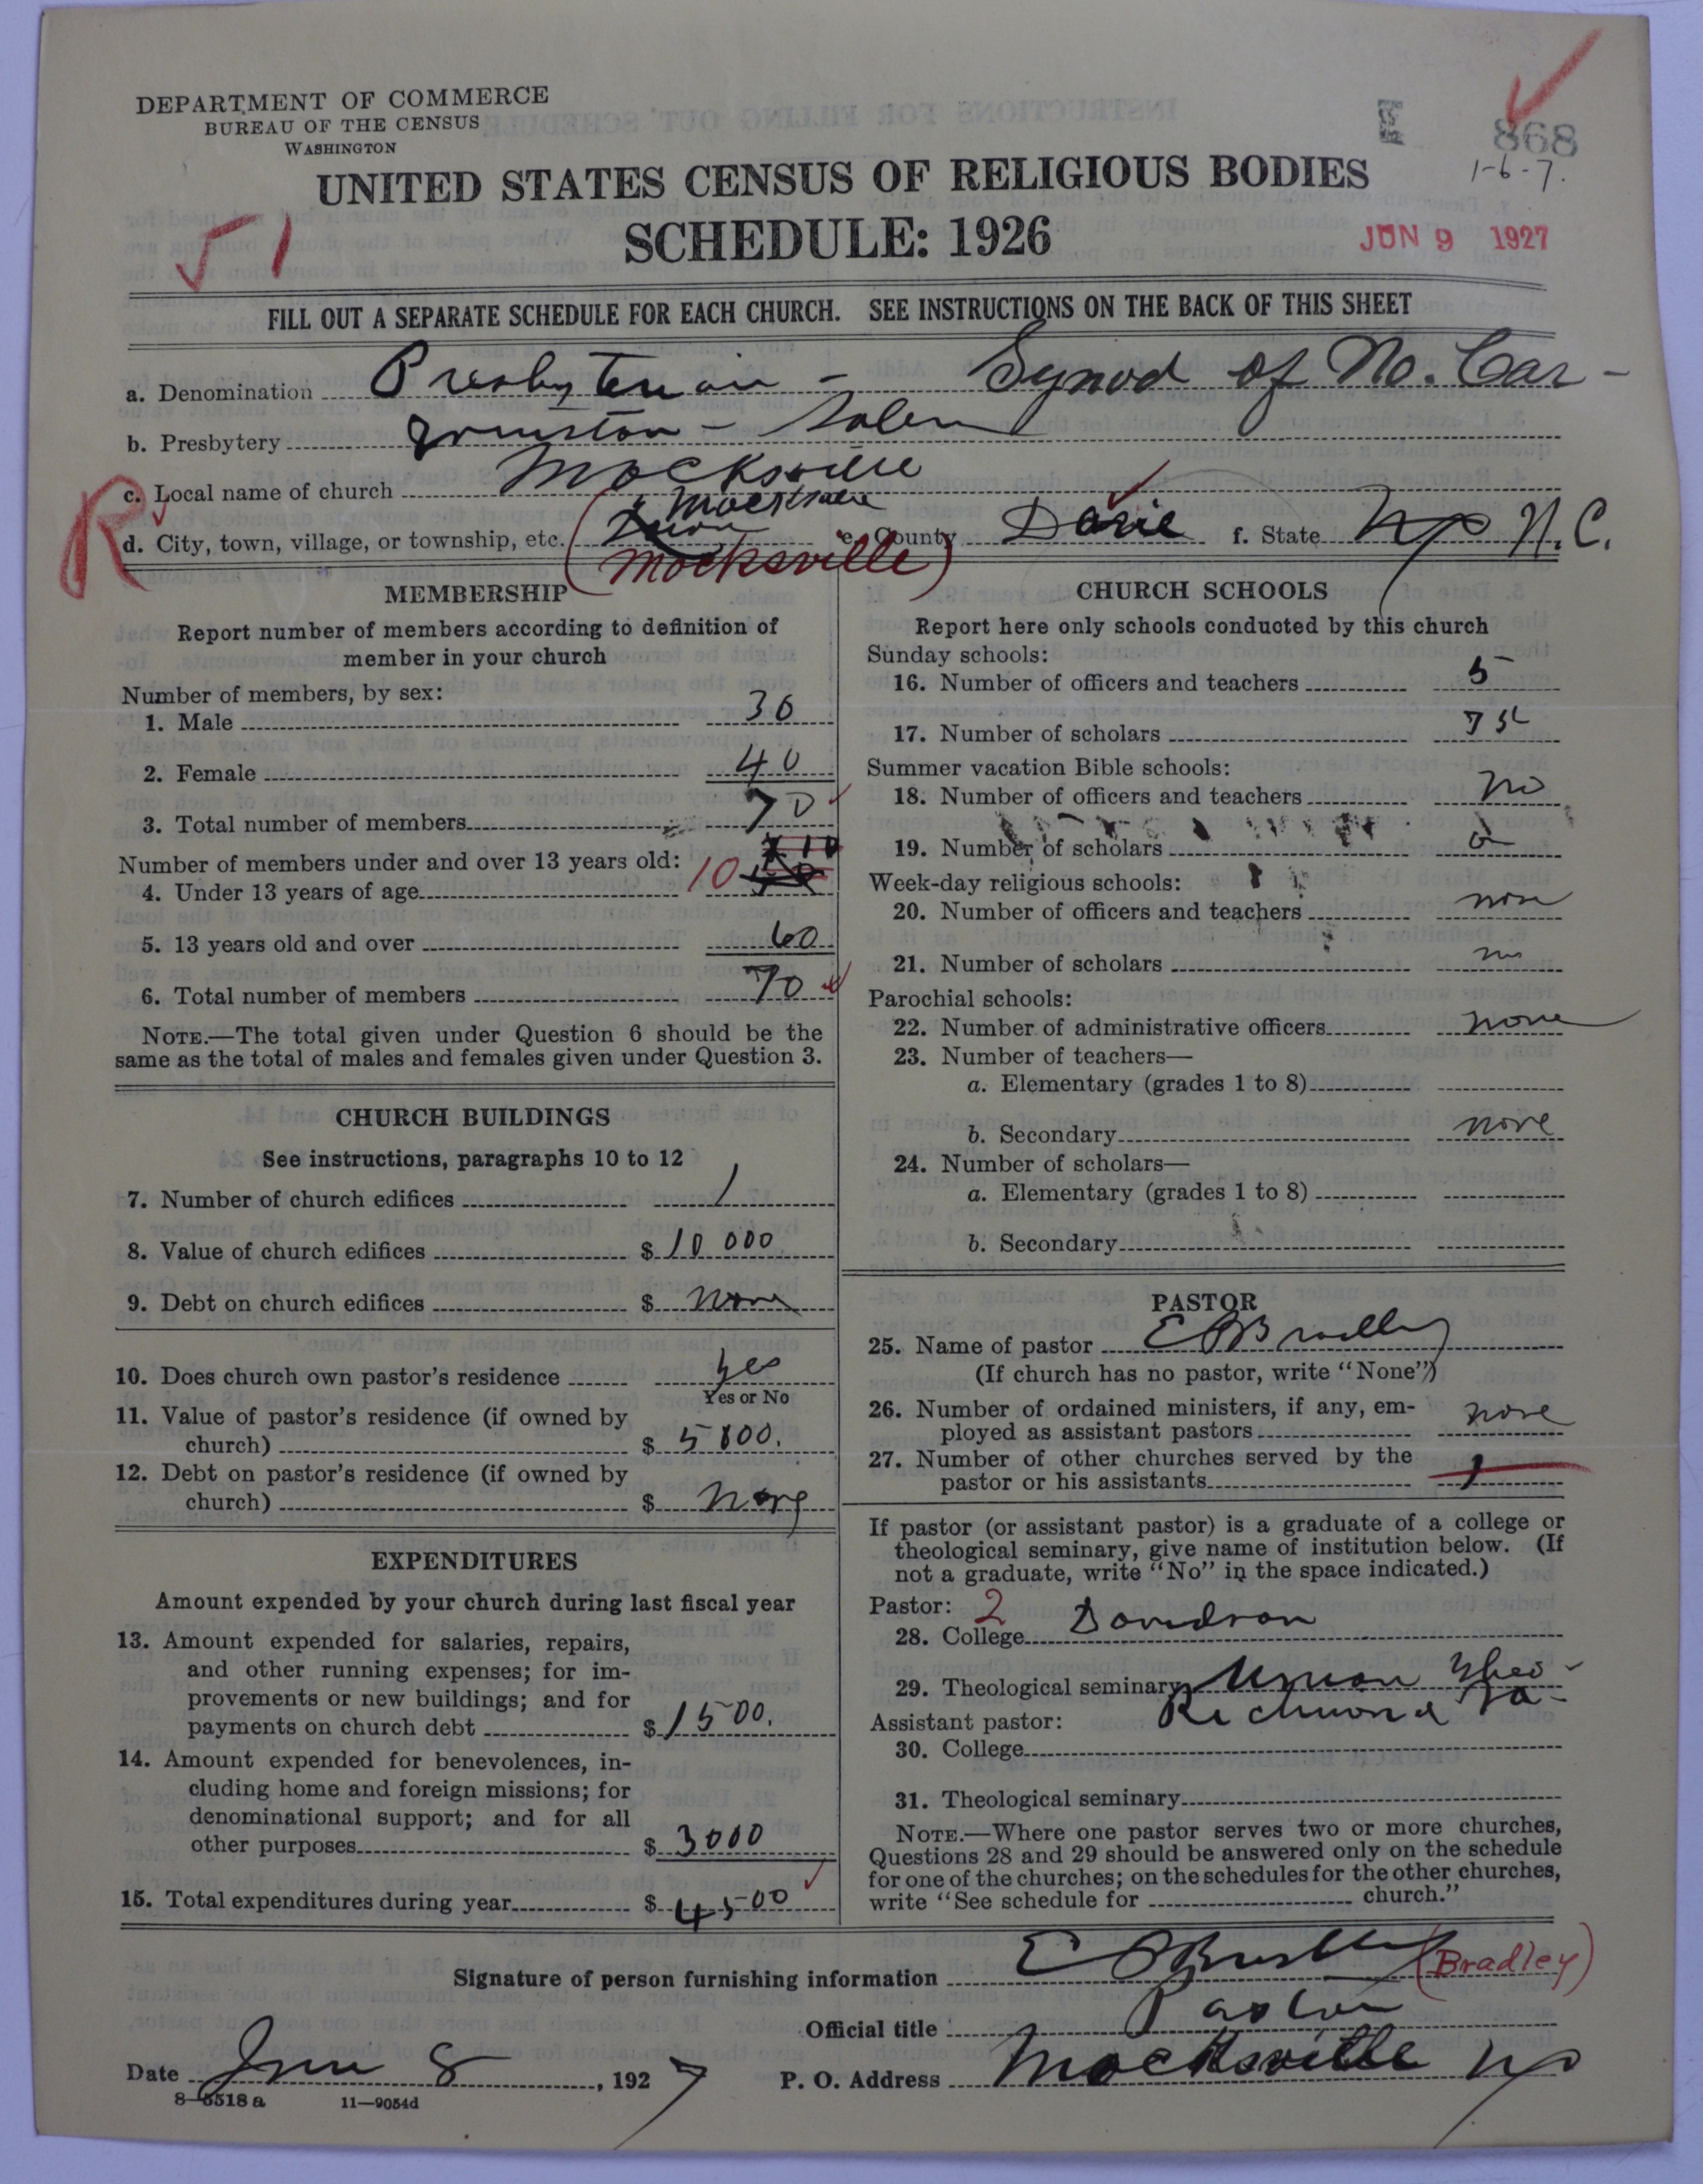 DEPARTMENT OF COMMERCE
BUREAU OF THE CENSUS
WASHINGTON
E 868
1-6-7.
UNITED STATES CENSUS OF RELIGIOUS BODIES
SCHEDULE: 1926
51
JUN 9 1927
FILL OUT A SEPARATE SCHEDULE FOR EACH CHURCH. SEE INSTRUCTIONS ON THE BACK OF THIS SHEET
a. Denomination Presbyterian - Synod of No. Car-
b. Presbytery Winston-Salem
R c. Local name of church Mocksville
d. City, town, village, or township, etc. (Mocksville) e. County Davie f. State N.C.
MEMBERSHIP
Report number of members according to definition of
member in your church
Number of members, by sex:
1. Male 30
2. Female 40
3. Total number of members 70
Number of members under and over 13 years old:
4. Under 13 years of age 10
5. 13 years old and over 60
6. Total number of members 70
NOTE.—The total given under Question 6 should be the
same as the total of males and females given under Question 3.
CHURCH BUILDINGS
See instructions, paragraphs 10 to 12
7. Number of church edifices 1
8. Value of church edifices $ 10 000
9. Debt on church edifices $ None
10. Does church own pastor's residence yes
Yes or No
11. Value of pastor's residence (if owned by
church) $ 5000.
12. Debt on pastor's residence (if owned by
church) $ None
EXPENDITURES
Amount expended by your church during last fiscal year
13. Amount expended for salaries, repairs,
and other running expenses; for im-
provements or new buildings; and for
payments on church debt $ 1500.
14. Amount expended for benevolences, in-
cluding home and foreign missions; for
denominational support; and for all
other purposes $ 3000
15. Total expenditures during year $ 4500
CHURCH SCHOOLS
Report here only schools conducted by this church
Sunday schools:
16. Number of officers and teachers 5
17. Number of scholars 75
Summer vacation Bible schools:
18. Number of officers and teachers no
19. Number of scholars
Week-day religious schools:
20. Number of officers and teachers none
21. Number of scholars
Parochial schools:
22. Number of administrative officers none
23. Number of teachers—
a. Elementary (grades 1 to 8)
b. Secondary none
24. Number of scholars—
a. Elementary (grades 1 to 8)
b. Secondary
PASTOR
25. Name of pastor E P Bradley
(If church has no pastor, write "None")
26. Number of ordained ministers, if any, em-
ployed as assistant pastors none
27. Number of other churches served by the
pastor or his assistants 1
If pastor (or assistant pastor) is a graduate of a college or
theological seminary, give name of institution below. (If
not a graduate, write "No" in the space indicated.)
Pastor: 2
28. College Davidson
29. Theological seminary Union Theo-
Assistant pastor: Richmond Va-
30. College
31. Theological seminary
NOTE.—Where one pastor serves two or more churches,
Questions 28 and 29 should be answered only on the schedule
for one of the churches; on the schedules for the other churches,
write "See schedule for church."
Signature of person furnishing information E P Bradley (Bradley)
Official title Pastor
Date June 8, 1927 P. O. Address Mocksville NC
8-6518a 11-9054d